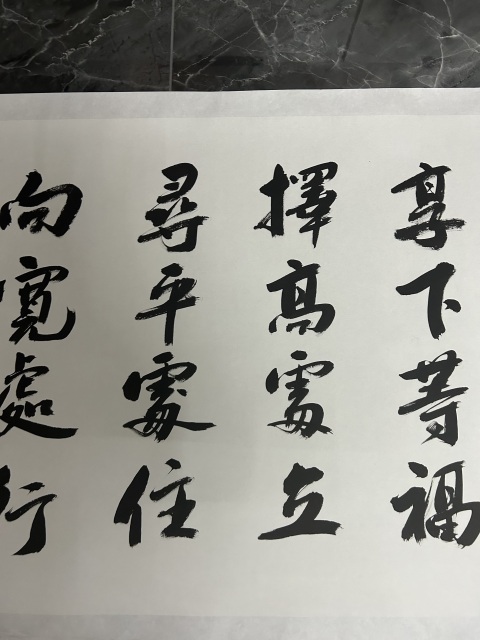 享下等福
擇高處立
尋平處住
向寬處行